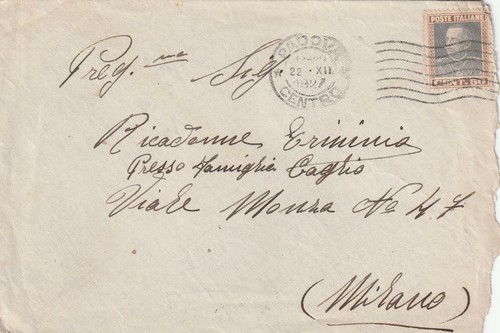 POSTE ITALIANE
CENT. 50
PADOVA
22 · XII
1927
CENTRO
Preg.ma Sig
Ricadonne Erminia
Presso famiglia Caglio
Viale Monza No 47
(Milano)